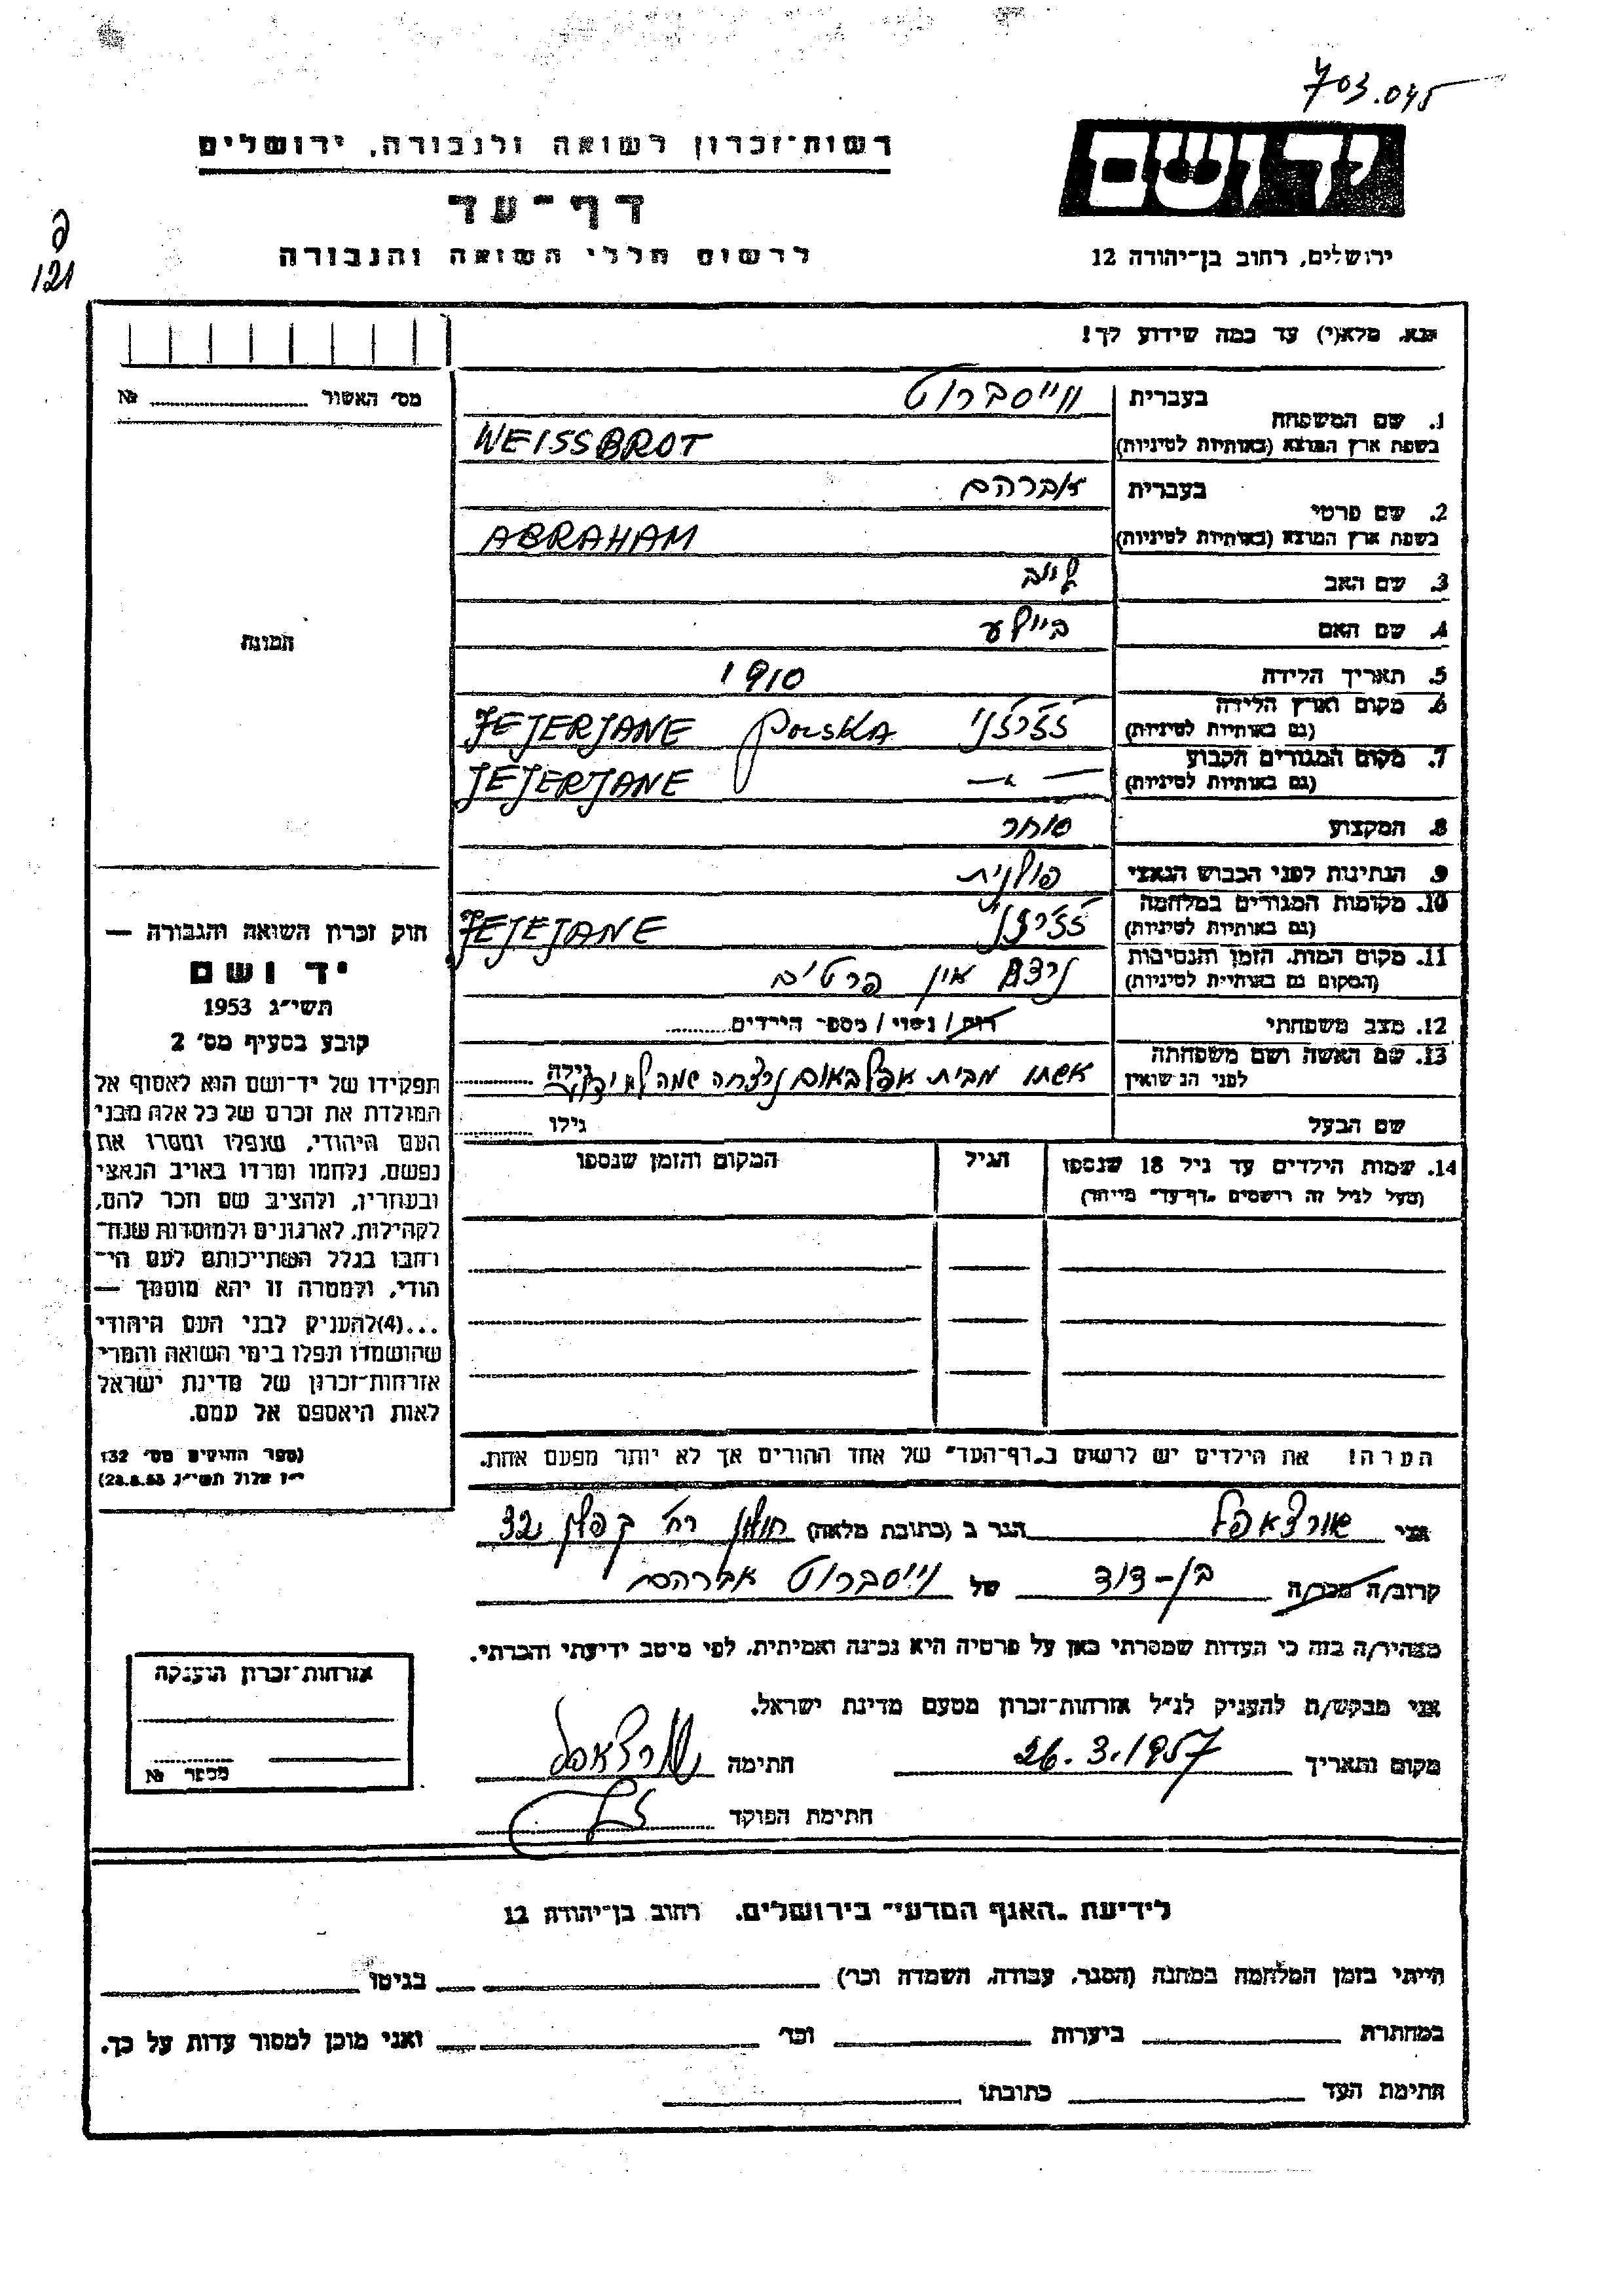 703.045
רשות־זכרון לשואה ולגבורה, ירושלים
יד ושם
דף־עד
לרשום חללי השואה והגבורה
ירושלים, רחוב בן־יהודה 12
121
נא. מלא(י) עד כמה שידוע לך!
מס׳ האשור № 
בעברית ווייסברוט
1. שם המשפחה
בשפת ארץ המוצא (באותיות לטיניות) WEISSBROT
בעברית אברהם
2. שם פרטי
בשפת ארץ המוצא (באותיות לטיניות) ABRAHAM
3. שם האב לייב
4. שם האם ביילע
תמונה
5. תאריך הלידה 1910
6. מקום וארץ הלידה
(גם באותיות לטיניות) JEJERJANE POLSKA
7. מקום המגורים הקבוע
(גם באותיות לטיניות) JEJERJANE — " —
8. המקצוע סוחר
9. הנתינות לפני הכבוש הנאצי פולנית
10. מקומות המגורים במלחמה
(גם באותיות לטיניות) JEJEJANE
11. מקום המות, הזמן והנסיבות
(המקום גם באותיות לטיניות) אין פרטים
12. מצב משפחתי רווק / נשוי / מספר הילדים
13. שם האשה ושם משפחתה
לפני הנשואין אשתו מבית אפלבאום נרצחה שמה לא ידוע גילה
שם הבעל גילו
14. שמות הילדים עד גיל 18 שנספו הגיל המקום והזמן שנספו
(מעל לגיל זה רושמים „דף־עד״ מיוחד)
הערה! את הילדים יש לרשום ב„דף־העד״ של אחד ההורים אך לא יותר מפעם אחת.
חוק זכרון השואה והגבורה —
יד ושם
תשי״ג 1953
קובע בסעיף מס׳ 2
תפקידו של יד־ושם הוא לאסוף אל
המולדת את זכרם של כל אלה מבני
העם היהודי, שנפלו ומסרו את
נפשם, נלחמו ומרדו באויב הנאצי
ובעוזריו, ולהציב שם וזכר להם,
לקהילות, לארגונים ולמוסדות שנח־
רחבו בגלל השתייכותם לעם הי־
הודי, ולמטרה זו יהא מוסמך —
...(4)להעניק לבני העם היהודי
שהושמדו ונפלו בימי השואה והמרי
אזרחות־זכרון של מדינת ישראל
לאות היאספם אל עמם.
(ספר החוקים מס׳ 132
י״ז אלול תשי״ג 28.8.53)
אני הגר ב (כתובת מלאה) חולון רח׳ קפלן 32
קרוב/ה מכר/ה בן-דוד של ווייסברוט אברהם
מצהיר/ה בזה כי העדות שמסרתי כאן על פרטיה היא נכונה ואמיתית, לפי מיטב ידיעתי והכרתי.
אני מבקש/ת להעניק לנ״ל אזרחות־זכרון מטעם מדינת ישראל.
מקום ותאריך 26.3.1957 חתימה
חתימת הפוקד
אזרחות־זכרון הוענקה
מספר №
לידיעת „האגף המדעי״ בירושלים, רחוב בן־יהודה 12
הייתי בזמן המלחמה במחנה (הסגר, עבודה, השמדה וכו׳) בגיטו
במחתרת ביערות וכו׳ ואני מוכן למסור עדות על כך.
חתימת העד כתובתו